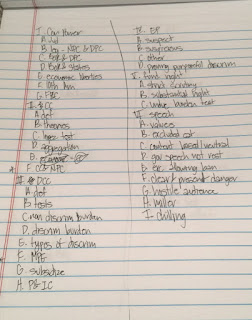 I. Con Power
A. jd
B. leg - NPC & DPC
C. BOR & DPC
D. BOR & States
E. economic liberties
F. 13th Am
G. PRC
II. CC
A. def
B. theories
C. Lopez test
D. aggregation
E.
F. CC & NPC
III. DCC
A. def
B. tests
C. non discrim burden
D. discrim burden
E. types of discrim
F. MPE
G. subsidize
H. P & IC
IV. EP
A. suspect
B. suspicious
C. other
D. proving purposeful discrim
V. fund right
A. strict scrutiny
B. substantial right
C. undue burden test
VI. speech
A. values
B. excluded cat
C. content based/neutral
D. gov speech not rest
E. flowing ban
F. clear & present danger
G. hostile audience
H. miller
I. chilling